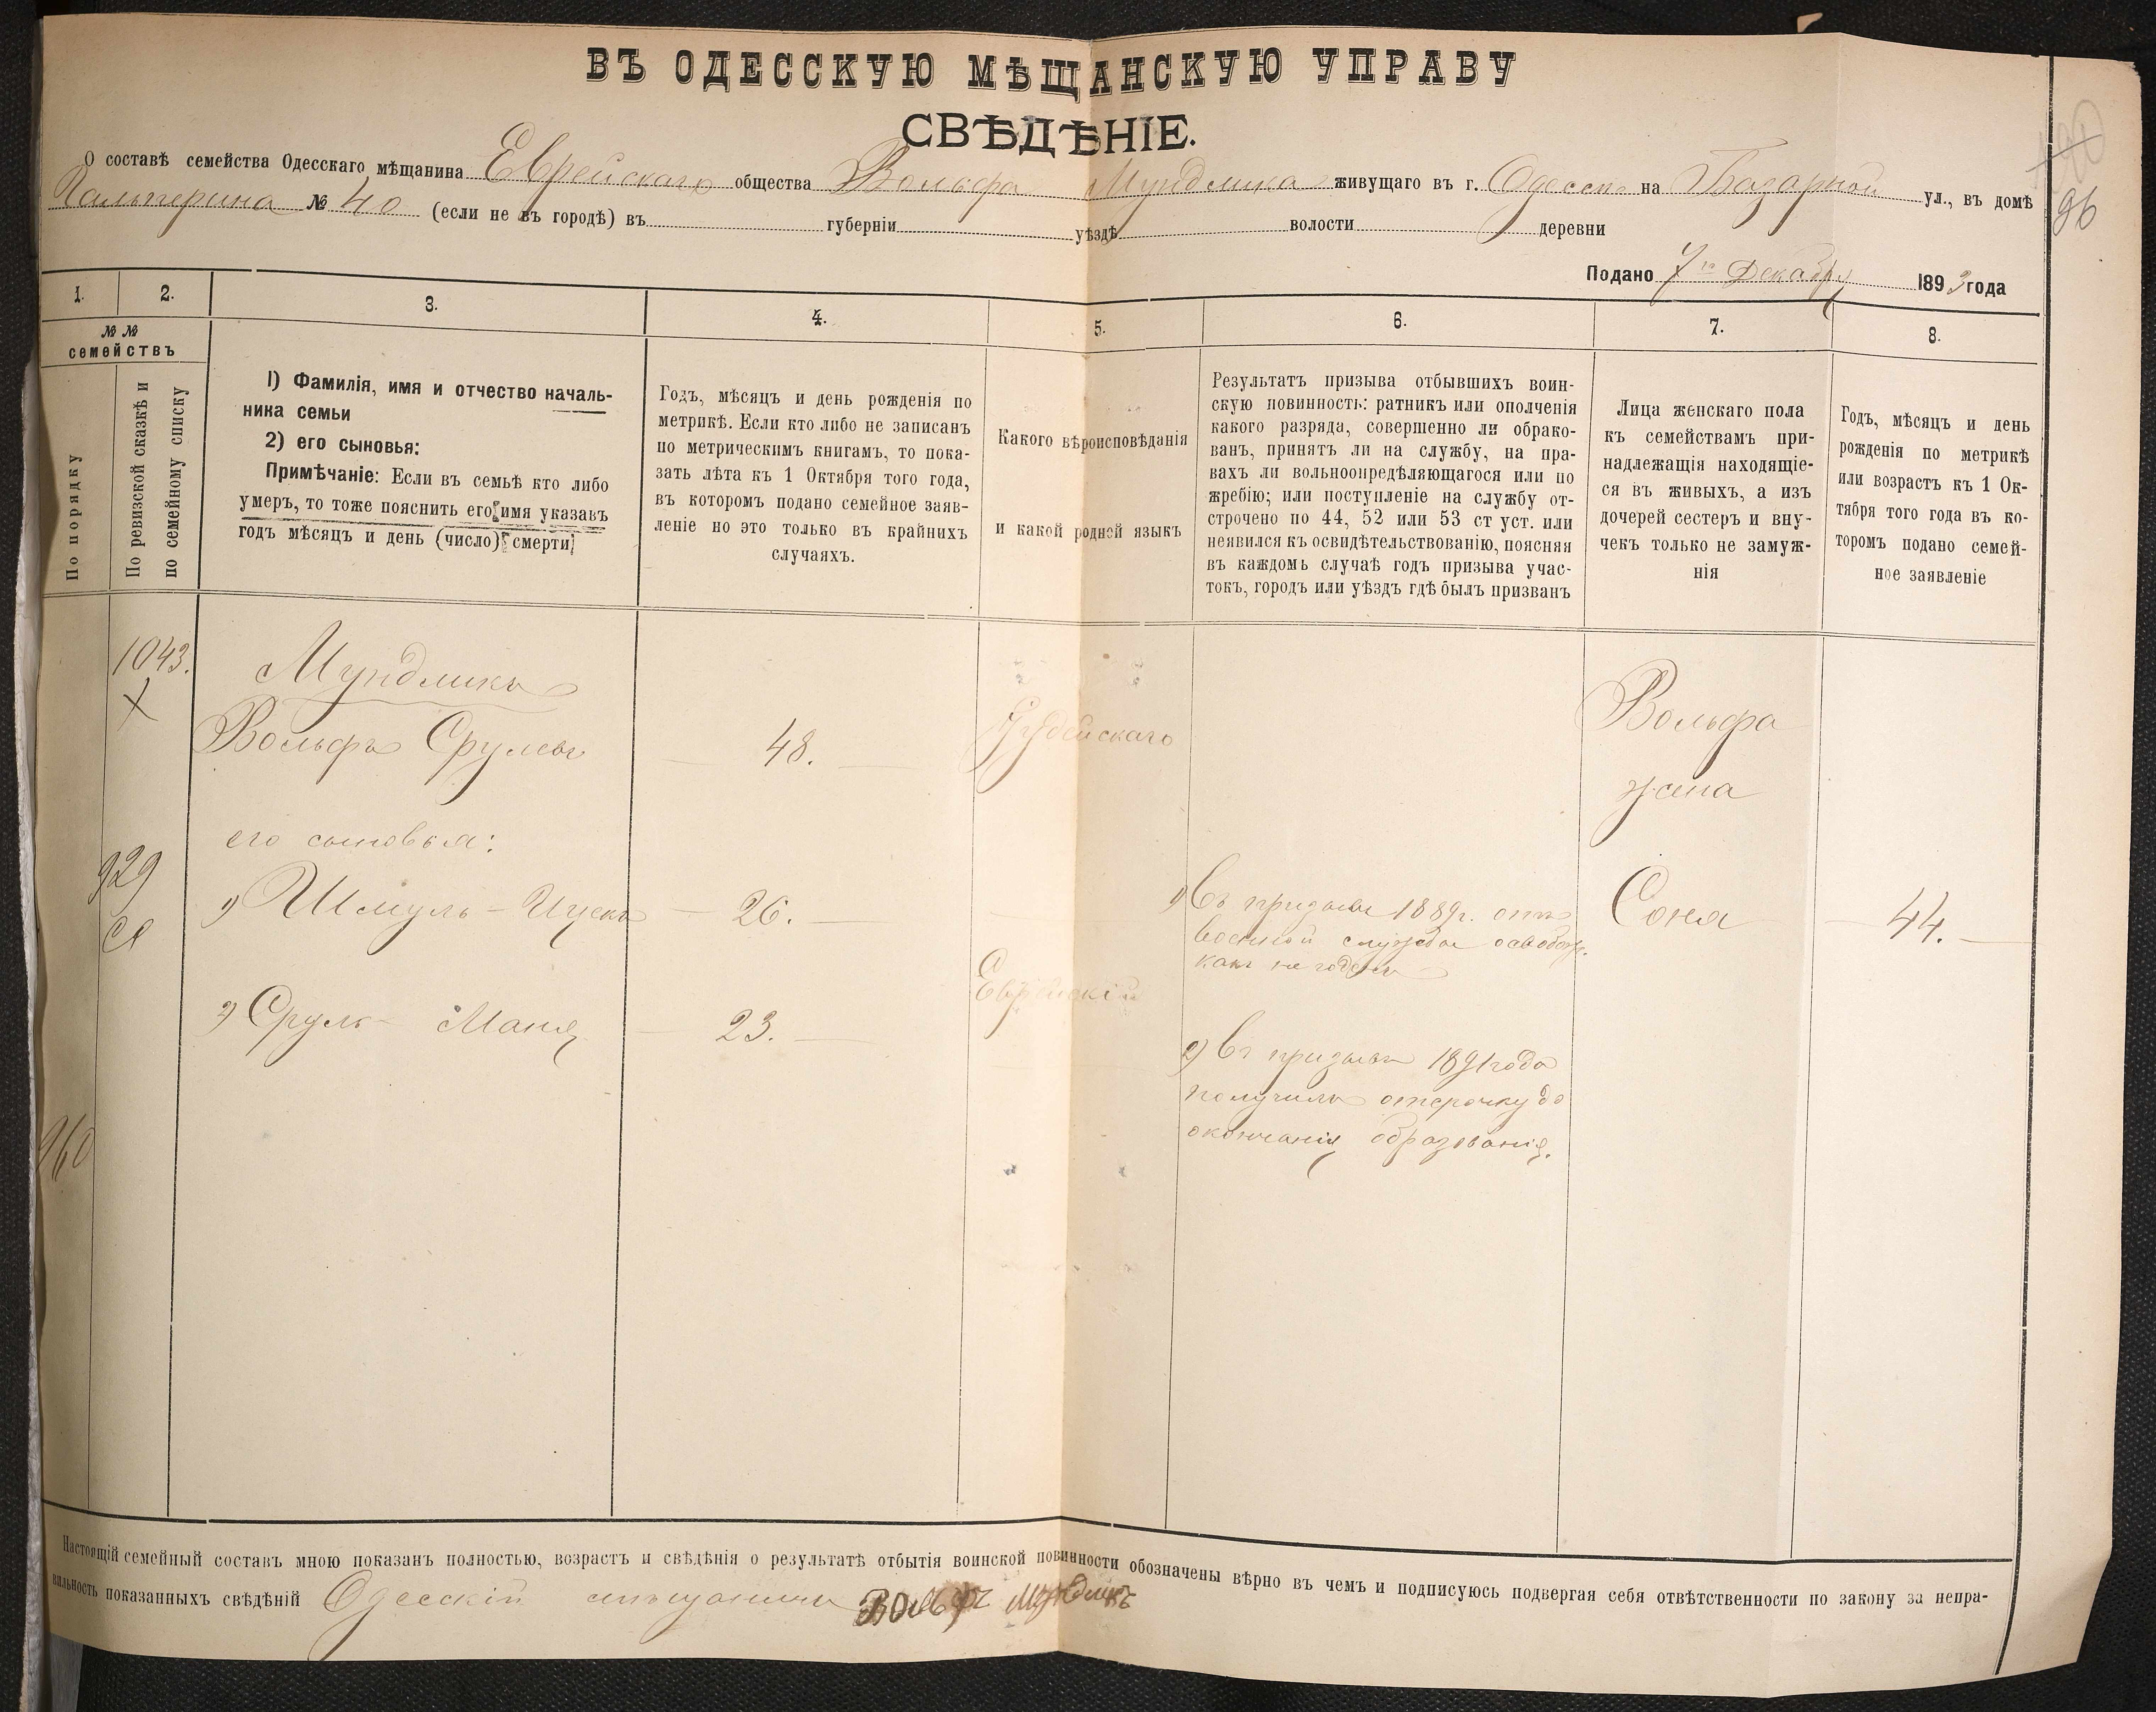 ВЪ ОДЕССКУЮ МѢЩАНСКУЮ УПРАВУ
СВѢДѢНІЕ.
О составѣ семейства Одесскаго мѣщанина Еврейскаго общества Вольфа Мундлика живущаго въ г. Одессѣ на Базарной ул., въ домѣ
Гальперина № 40 (если не въ городѣ) въ губерніи уѣздѣ волости деревни
96
Подано 7го Декабря 1893 года
1. 2. 3. 4. 5. 6. 7. 8.
№ №
семействъ
По порядку
По ревизской сказкѣ и
по семейному списку
1) Фамилія, имя и отчество началь-
ника семьи
2) его сыновья:
Примѣчаніе: Если въ семьѣ кто либо
умеръ, то тоже пояснить его имя указавъ
годъ мѣсяцъ и день (число) смерти
Годъ, мѣсяцъ и день рожденія по
метрикѣ. Если кто либо не записанъ
по метрическимъ книгамъ, то пока-
зать лѣта къ 1 Октября того года,
въ которомъ подано семейное заяв-
леніе но это только въ крайнихъ
случаяхъ.
Какого вѣроисповѣданія
и какой родной языкъ
Результатъ призыва отбывшихъ воин-
скую повинность: ратникъ или ополченія
какого разряда, совершенно ли обрако-
ванъ, принятъ ли на службу, на пра-
вахъ ли вольноопредѣляющагося или по
жребію; или поступленіе на службу от-
строчено по 44, 52 или 53 ст уст. или
неявился къ освидѣтельствованію, поясняя
въ каждомъ случаѣ годъ призыва учас-
токъ, городъ или уѣздъ гдѣ былъ призванъ
Лица женскаго пола
къ семействамъ при-
надлежащія находящіе-
ся въ живыхъ, а изъ
дочерей сестеръ и вну-
чекъ только не замуж-
нія
Годъ, мѣсяцъ и день
рожденія по метрикѣ
или возрастъ къ 1 Ок-
тября того года въ ко-
торомъ подано семей-
ное заявленіе
1043.
Мундликъ
Вольфъ Срулевъ 48. Іудейскаго
Вольфа
жена
его сыновья:
929
1) Шмуль-Ицекъ 26.
1) Въ призывъ 1889г. отъ
военной службы освобожд.
какъ негодный
Соня 44.
Еврейскій
2) Сруль Маня 23.
2) Въ призывъ 1891 года
получилъ отсрочку до
окончанія образованія.
960
Настоящій семейный составъ мною показанъ полностью, возрастъ и свѣдѣнія о результатѣ отбытія воинской повинности обозначены вѣрно въ чемъ и подписуюсь подвергая себя отвѣтственности по закону за непра-
вильность показанныхъ свѣдѣній Одесскій мѣщанинъ Вольфъ Мундликъ